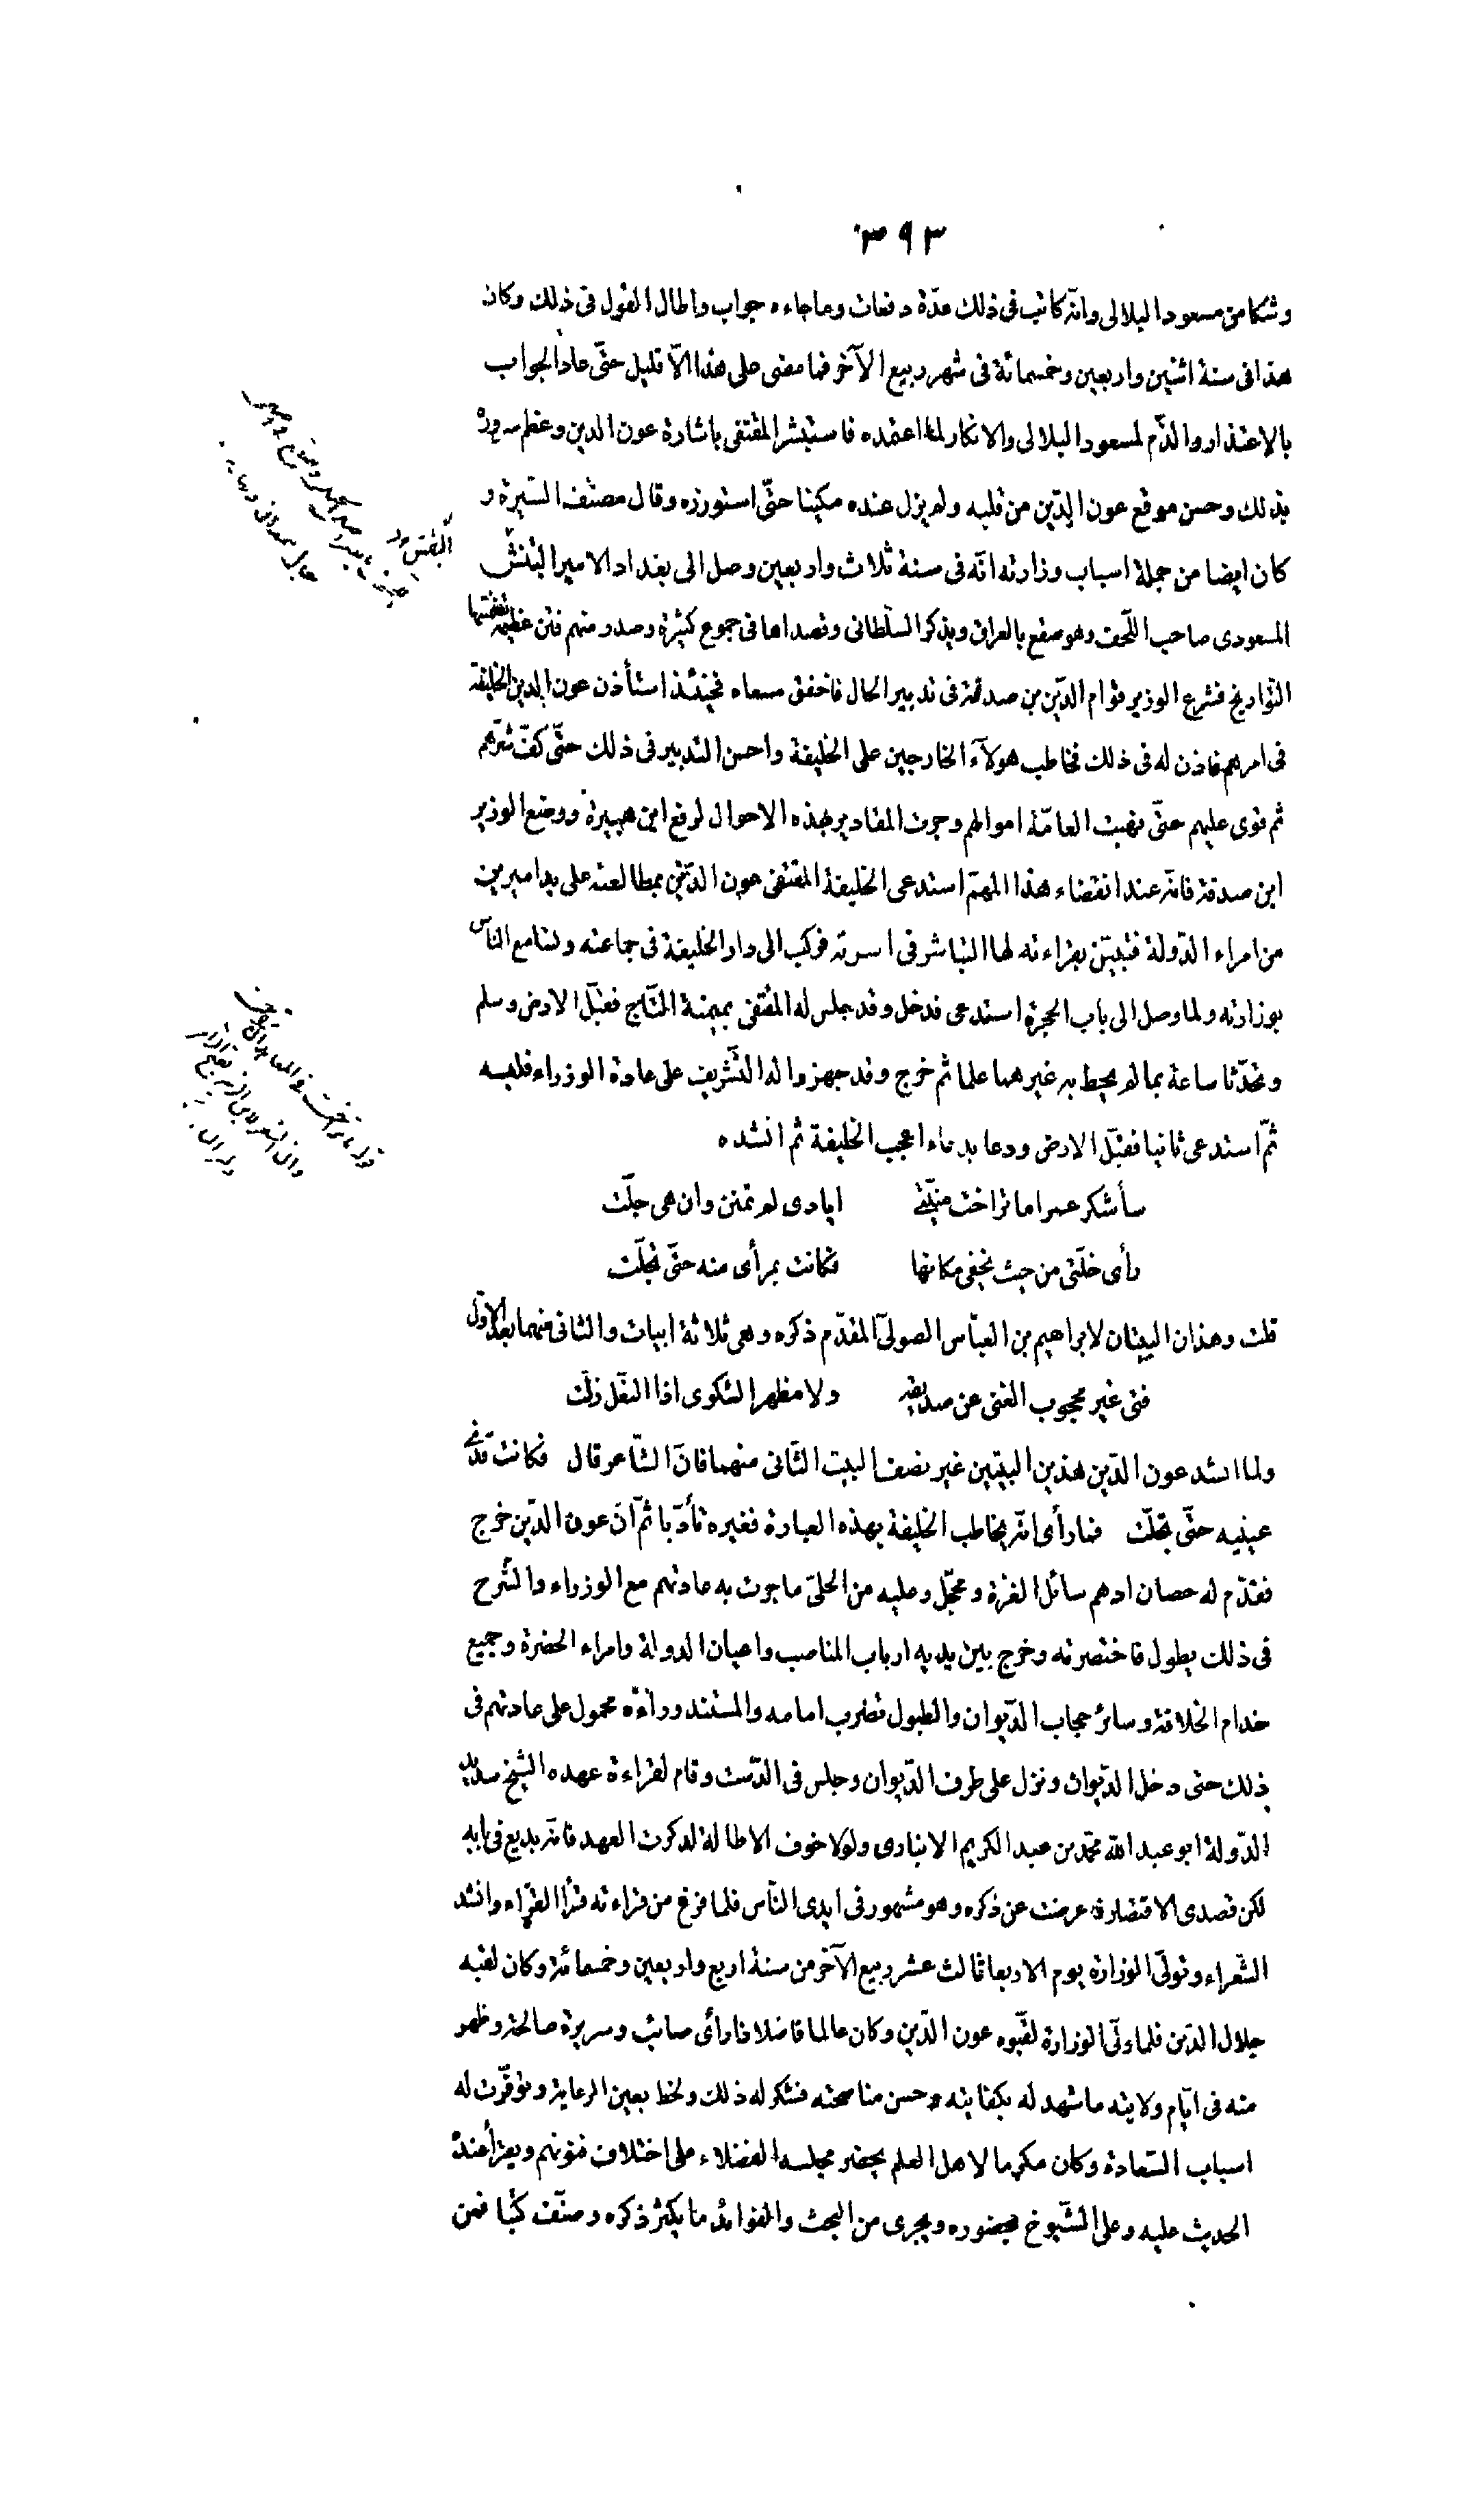 ٣٩٣
وشكا من مسعود البلالى وانّه كاتب فى ذلك عدّة دفعات وما جاءه جواب واطال القول فى ذلك وكان
هذا فى سنة اثنين واربعين وخمسمائة فى شهر ربيع الآخر فما مضى على هذا الّا قليل حتّى عاد الجواب
بالاعتذار والذّم لمسعود البلالى والانكار لما اعتمده فاستبشر المقتفى باشارة عون الدين وعظم سروره
بذلك وحسن موقع عون الدّين من قلبه ولم يزل عنده مكينا حتّى استوزره وقال مصنّف السّيرة و
كان ايضا من جملة اسباب وزارته انّه فى سنة ثلاث واربعين وصل الى بغداد الامير البقش
المسعودى صاحب اللّحف وهو صقع بالعراق ويذكر السلطانى وقصداها فى جموع كثيرة وصدر منهم فتن عظيمة تضمّنتها
التّواريخ فشرع الوزير قوام الدّين بن صدقة فى تدبير الحال فاخفق مسعاه فحينئذ استأذن عون الدين الخليفة
فى امرهم فاذن له فى ذلك فخاطب هولآء الخارجين على الخليفة واحسن التدبير فى ذلك حتّى كفّ شرّهم
ثم قوى عليهم حتّى نهبت العامّة اموالهم وجرت المقادير بهذه الاحوال لرفع ابن هبيرة ووضع الوزير
ابن صدقة فانّه عند انقضاء هذا المهمّ استدعى الخليفة المقتفى عون الدّين بمطالعته على يد اميرين
من امراء الدّولة فتبيّن بقراءته لها التباشر فى اسرته فركب الى دار الخليفة فى جماعته وتسامع النّاس
بوزارته ولما وصل الى باب الحجرة استدعى فدخل وقد جلس له المقتفى بميمنة التّاج فقبّل الارض وسلم
وتحدّثا ساعة بما لم يحط به غيرهما علما ثم خرج وقد جهزوا له التّشريف على عادة الوزراء فلبسه
ثمّ استدعى ثانيا فقبّل الارض ودعا بدعاء اعجب الخليفة ثم انشده
سأشكر عمرا ما تراخت منيّتى ايادى لم تمنن وان هى جلّت
رأى خلّتى من حيث يخفى مكانها فكانت بمرأى منه حتّى تجلّت
قلت وهذان البيتان لابراهيم بن العبّاس الصولىّ المقدّم ذكره وهى ثلاثة ابيات والثانى منهما بعد الاوّل
فتى غير محجوب الغنى عن صديقه ولا مظهر الشكوى اذا النعّل زلّت
ولما انشد عون الدّين هذين البيتين غير نصف البيت الثّانى منهما فانّ الشّاعر قال فكانت قذى
عينيه حتّى تجلّت فما رأى انّه يخاطب الخليفة بهذه العبارة فغيره تأدّبا ثمّ انّ عون الدّين خرج
فقدّم له حصان ادهم سائل الغرّة ومحجّل وعليه من الحلىّ ما جرت به عادتهم مع الوزراء والشّرح
فى ذلك يطول فاختصرته وخرج بين يديه ارباب المناصب واعيان الدولة وامراء الحضرة وجميع
خدام الخلافة وسائر حجاب الدّيوان والطبول تضرب امامه والمستند وراءه محمول على عادتهم فى
ذلك حتى دخل الدّيوان ونزل على طرف الدّيوان وجلس فى الدّست وقام لقراءة عهده الشّيخ سديد
الدّولة ابو عبد الله محمّد بن عبد الكريم الانبارى ولولا خوف الاطالة لذكرت العهد فانّه بديع فى بابه
لكن قصدى الاقتصار فاعرضت عن ذكره وهو مشهور فى ايدى النّاس فلما فرغ من قراءته قرأ القرّاء وانشد
الشّعراء وتولّى الوزارة يوم الاربعا ثالث عشر ربيع الآخر من سنة اربع واربعين وخمسمائة وكان لقبه
جلال الدّين فلما ولّى الوزارة لقّبوه عون الدّين وكان عالما فاضلا ذا رأى صائب وسريرة صالحة وظهر
منه فى ايّام ولايته ما شهد له بكفايته وحسن مناصحته فشكر له ذلك ولحظ بعين الرعاية وتوفّرت له
اسباب السّعادة وكان مكرما لاهل العلم يحضر مجلسه الفضلاء على اختلاف فنونهم ويقرأ عنده
الحديث عليه وعلى الشّيوخ بحضوره ويجرى من البحث والفوائد ما يكثر ذكره وصنّف كتبا فمن